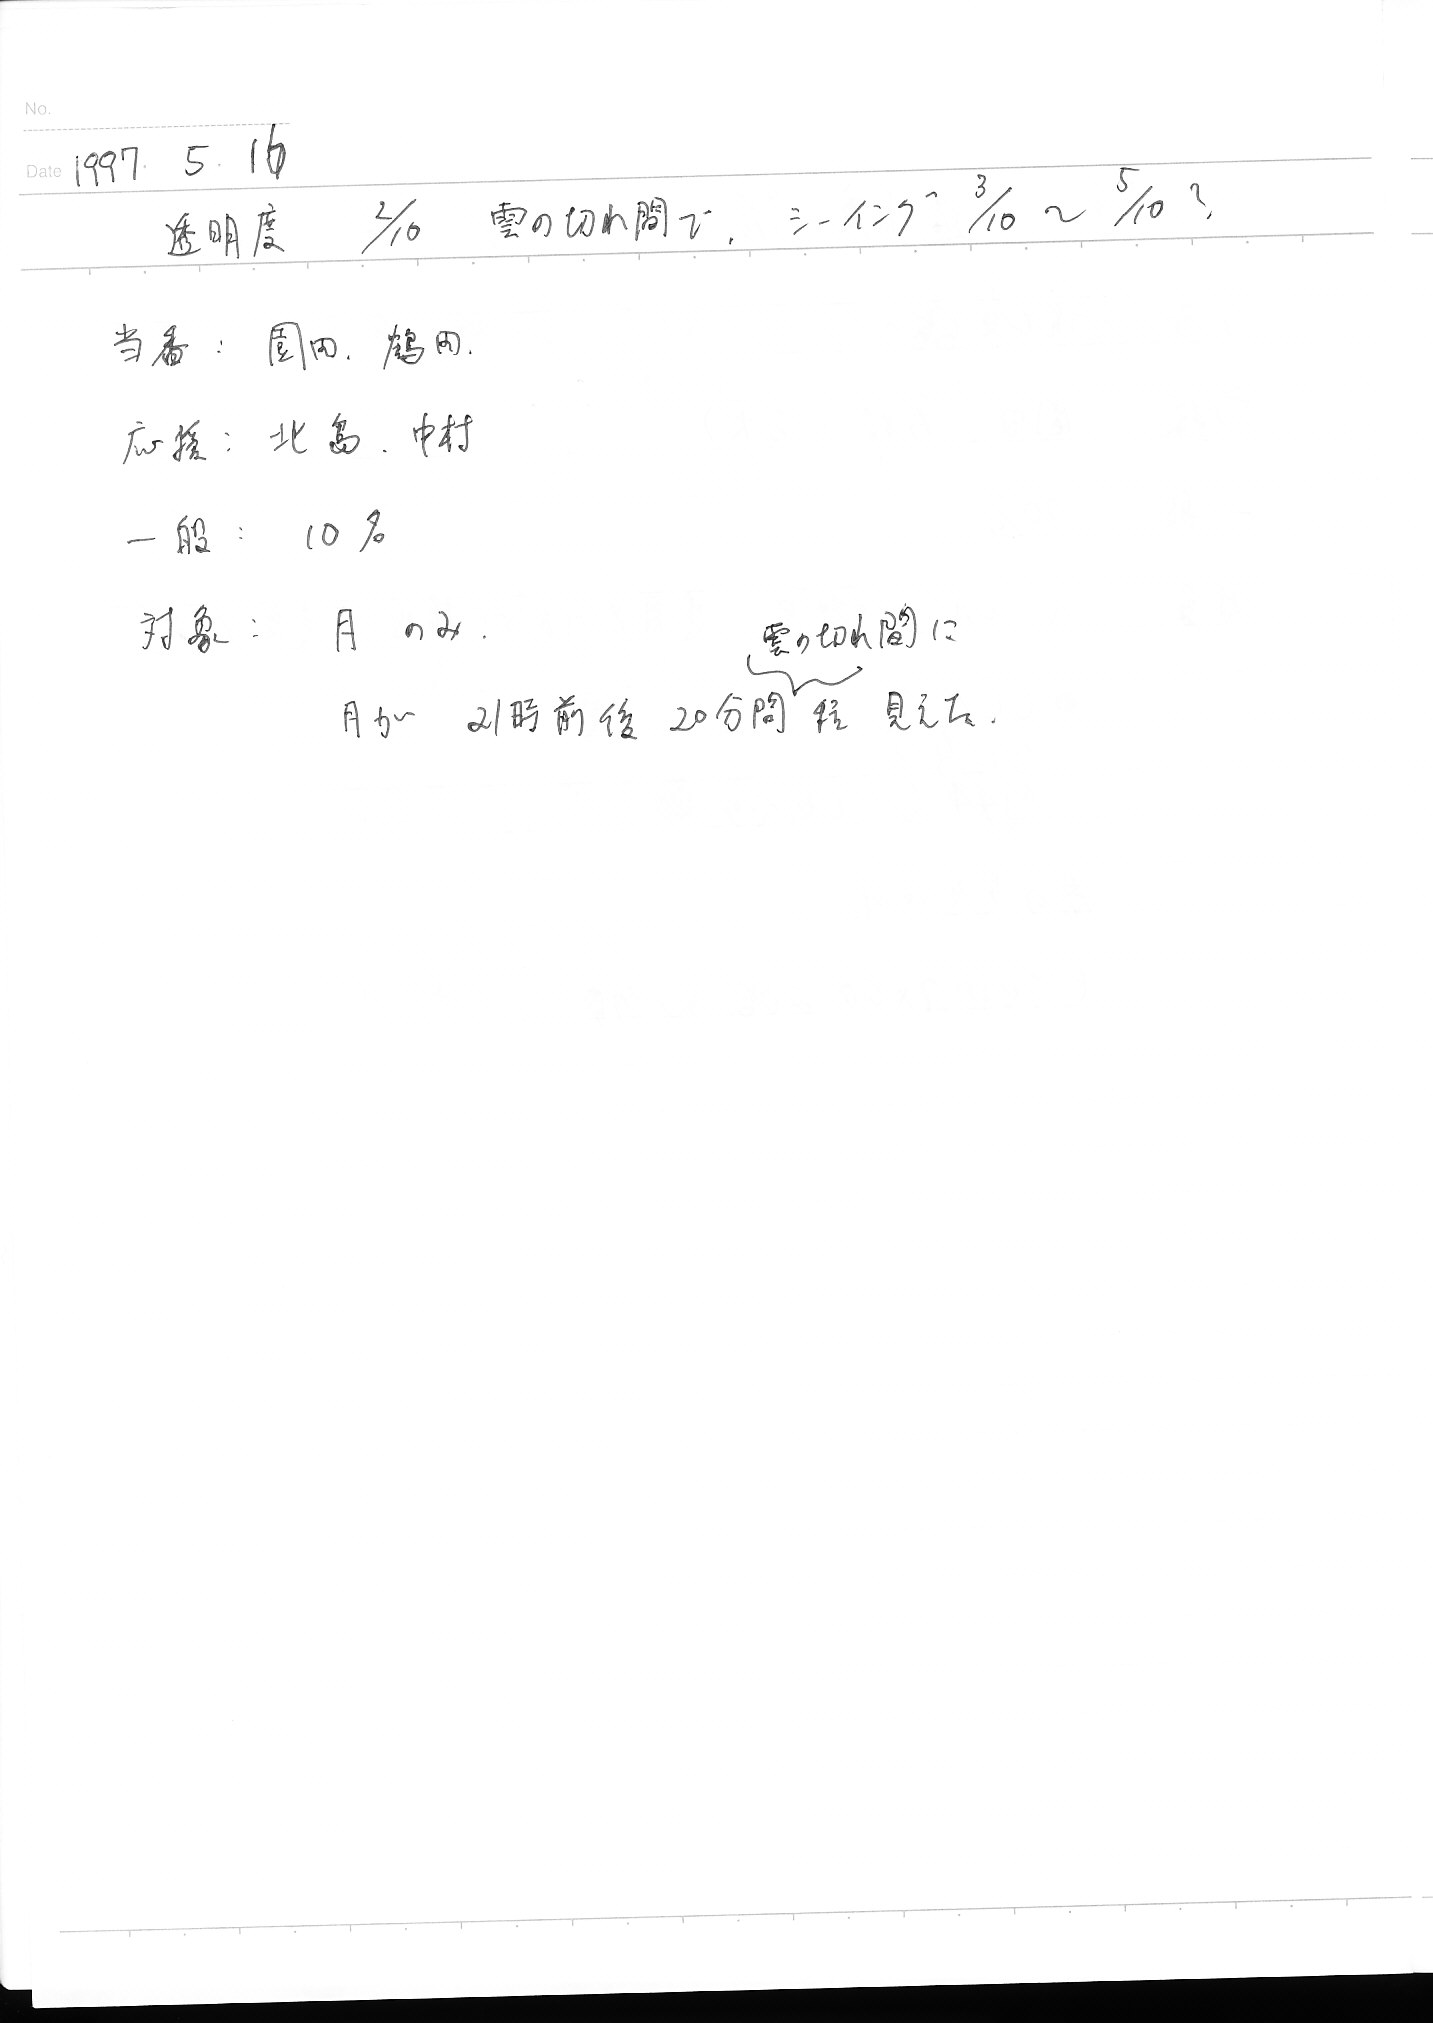 No.
Date 1997. 5. 16
透明度 2/10 雲の切れ間で. シーイング 3/10 〜 5/10 ?
当番: 園田. 鶴田.
応援: 北島. 中村
一般: 10名
対象: 月 のみ.
雲の切れ間に
月が 21時前後 20分間 程 見えた.